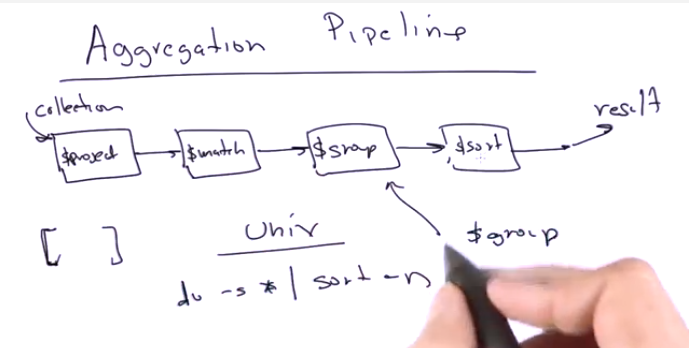 Aggregation Pipeline
collection
result
$project $match $group $sort
[ ]
Unix
$group
du -s * | sort -n